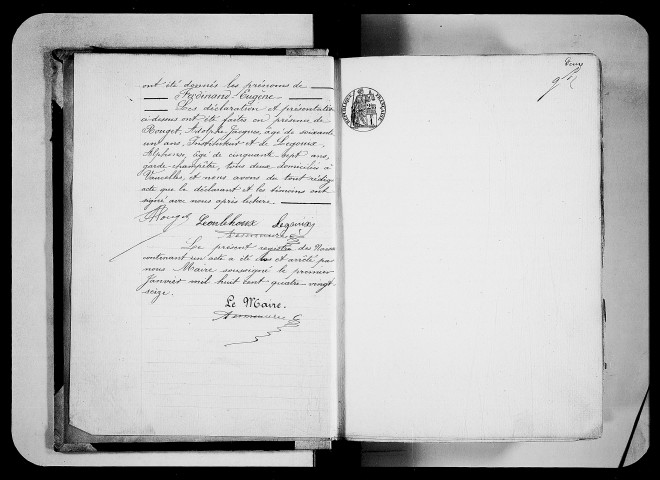 ont été donnés les prénoms de
Ferdinand Eugène
Les déclaration et présentation
ci-dessus ont été faites en présence de
Rouget, Adolphe Jacques, âgé de soixante
un ans, Instituteur et de Legoux
Alphonse, âgé de cinquante sept ans,
garde-champêtre, tous deux domiciliés à
Vaucelles et nous avons du tout rédigé
acte que le déclarant et les témoins ont
signé avec nous après lecture.
Rouget Legoux
Le présent registre des Naiss
contenant un acte a été clos et arrêté par
nous Maire soussigné le premier
Janvier mil huit cent quatre-vingt-
seize.
Le Maire.
Deux